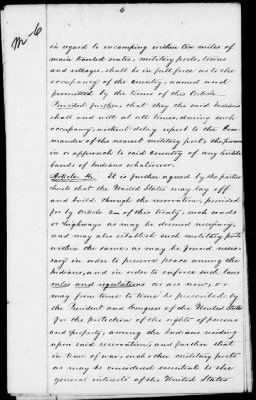 6
M-6
in regard to encamping within ten miles of
main traveled routes, military posts, towns
and villages, shall be in full force as to the
occupancy of the country, named and
permitted by the terms of this Article
Provided further, that they the said Indians
shall and will at all times, during such
occupancy, without delay report to the Com-
mander of the nearest military post, the presence
in or approach to said country of any hostile
bands of Indians whatsoever.
Article 4. It is further agreed by the parties
hereto that the United States may lay off
and build through the reservation, provided
for by Article 2 of this treaty, such roads
or highways as may be deemed necessary,
and may also establish such military posts
within the same, as may be found neces-
sary in order to preserve peace among the
Indians, and in order to enforce such laws
rules and regulations as are now, or
may from time to time be prescribed by
the President and Congress of the United States
for the protection of the rights of persons
and property, among the Indians residing
upon said reservation, and further that
in time of war, such other military posts
as may be considered essential to the
general interests of the United States